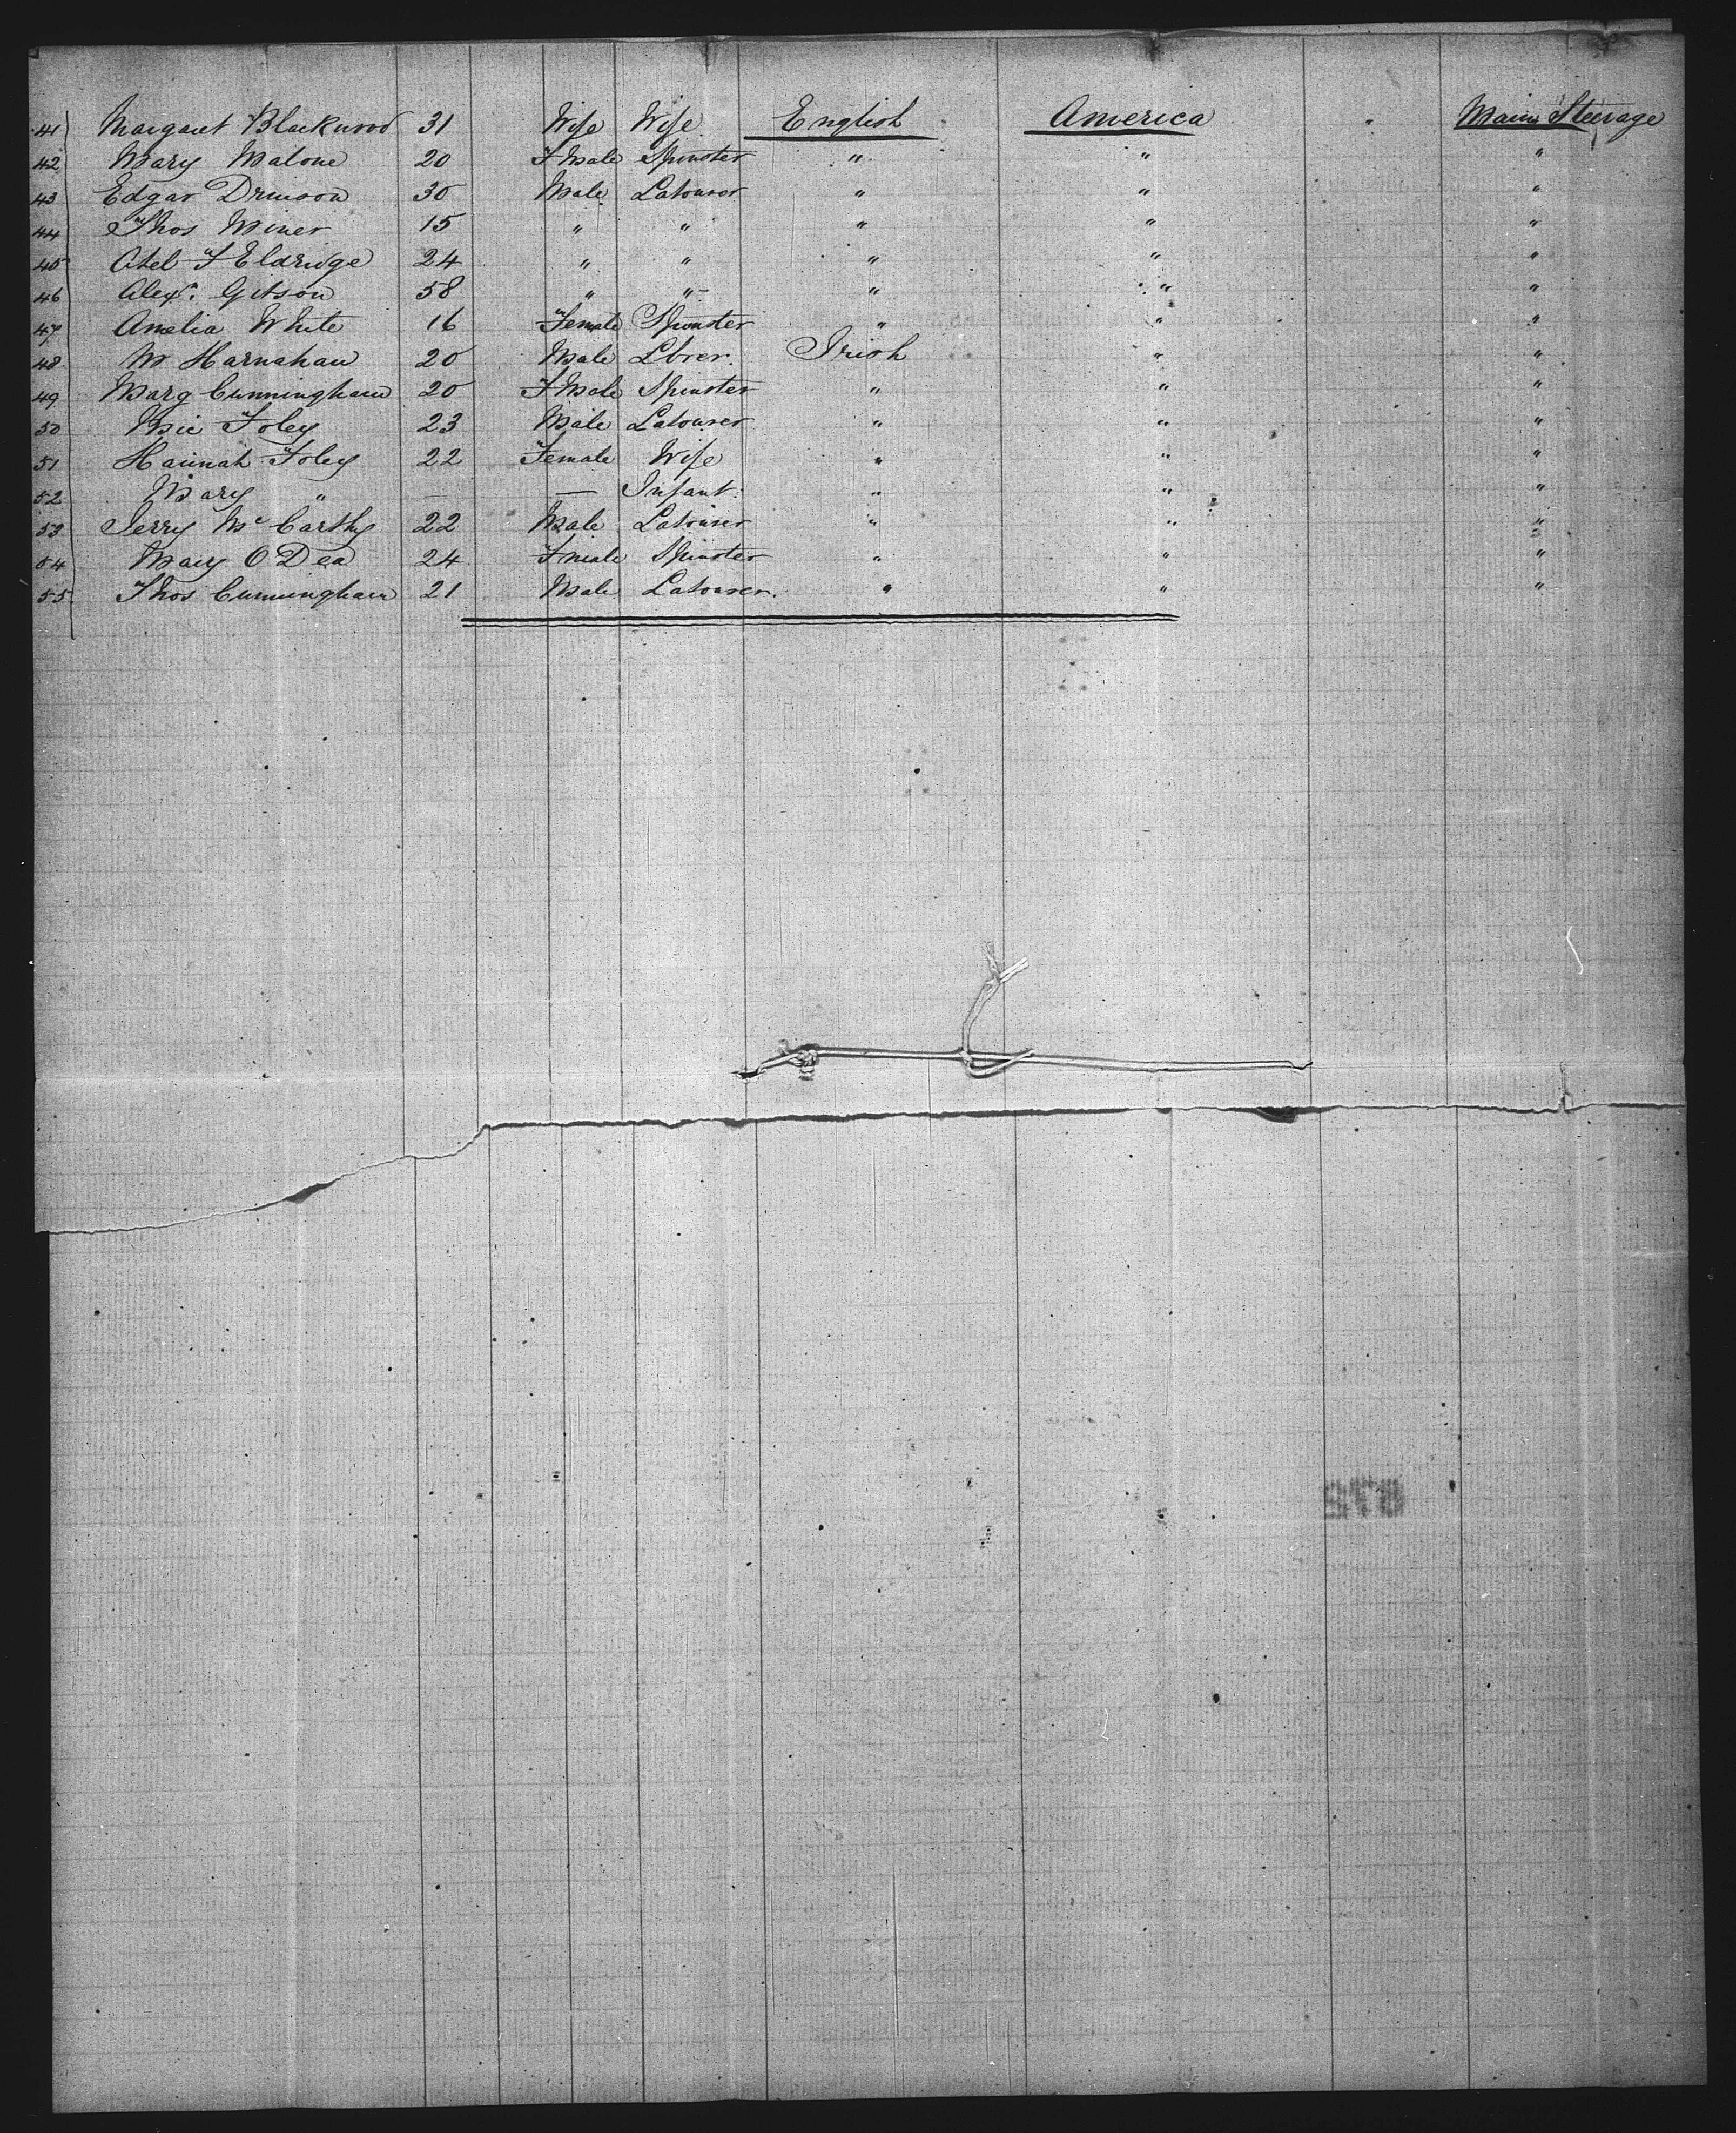 41 Margaret Blackwood 31 Wife Wife English America " Main Steerage
42 Mary Malone 20 Fmale Spinster " " "
43 Edgar 30 Male Labourer " " "
44 Thos Miner 15 " " " " "
45 F Eldridge 24 " " " " "
46 Alexr. Gibson 58 " " " " "
47 Amelia White 16 Female Spinster " " "
48 M Harnahan 20 Male Lbrer. Irish " "
49 Marg Cunningham 20 Fmale Spinster " " "
50 Mic Foley 23 Male Labourer " " "
51 Hannah Foley 22 Female Wife " " "
52 Mary " — — Infant. " " "
53 Jerry Mc Carthy 22 Male Labourer " " "
54 Mary O Dea 24 Fmale Spinster " " "
55 Thos Cunningham 21 Male Labourer. " " "